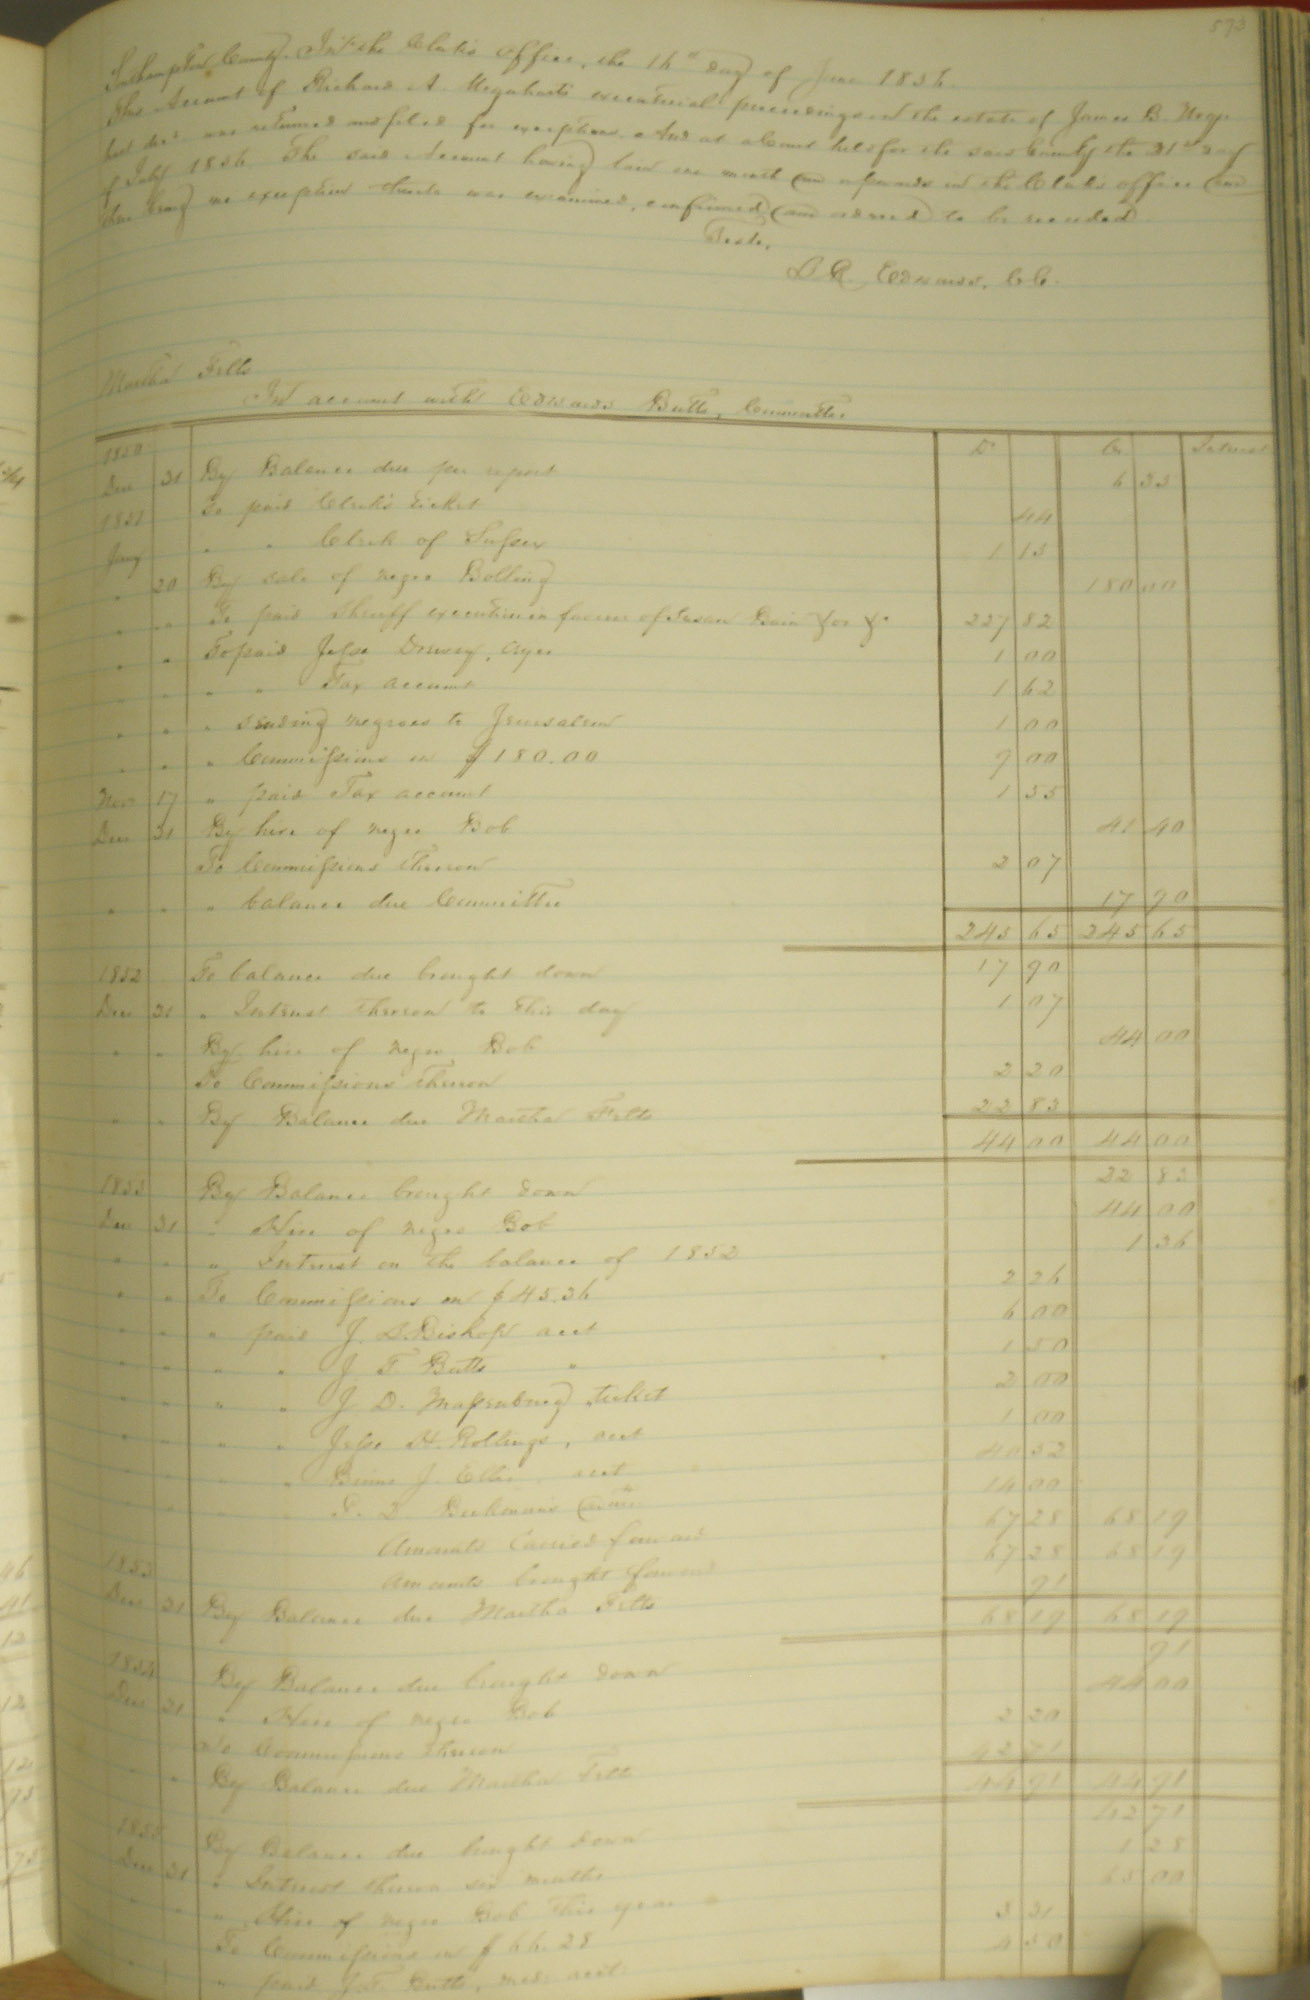 593
Southampton County. In the Clerk's office, the 16th day of June 1856.
This Account of Richard A. Urquhart's executorial proceedings on the estate of James B. Urqu-
hart decd was returned and filed for exceptions. And at a Court held for the said County the 21st day
of July 1856. The said Account having lain one month and upwards in the Clerk's office and
there being no exception thereto was examined, confirmed and ordered to be recorded
Teste,
L. R. Edwards, C.C.
Martha Felts
In account with Edwards Butts, Committee.
Dr Cr Interest
1850
Dec 31 By Balance due per report 6 35
1851 To paid Clerk's ticket 44
Jany " " Clerk of Sussex 1 15
" 20 By sale of negro Bolling 180 00
" " To paid Sheriff execution in favour of Susan Bain 227 82
" " To paid Jesse Drewry, Ayes 1 00
" " " " Tax account 1 62
" " " sending negroes to Jerusalem 1 00
" " " Commissions on $180.00 9 00
Nov 17 " paid Tax account 1 55
Dec 31 By hire of negro Bob 41 40
To Commissions thereon 2 07
" " " balance due Committee 17 90
245 65 245 65
1852 To balance due brought down 17 90
Dec 31 " Interest thereon to this day 1 07
" " By hire of negro Bob 44 00
To Commissions thereon 2 20
" " By Balance due Martha Felts 22 83
44 00 44 00
1853 By Balance brought down 22 83
Dec 31 " Hire of negro Bob 44 00
" " " Interest on the balance of 1852 1 36
" " To Commissions on $45.36 2 26
" " " paid J. S. Bishop acct 6 00
" " " " J T Butts " 1 50
" " " J. D. Massenburg ticket 2 00
" " " Jesse H. Rollings, acct 1 00
" " " J. Ellis, acct 40 52
" " " T. D. 14 00
Amounts Carried forward 67 28 68 19
1853 Amounts brought forward 67 28 68 19
Dec 31 By Balance due Martha Felts 91
68 19 68 19
1854 By Balance due brought down 91
Dec 31 " Hire of negro Bob 44 00
To Commissions thereon 2 20
" By Balance due Martha Felts 42 71
44 91 44 91
1855 By Balance due brought down 42 71
Dec 31 " Interest thereon six months 1 28
" " " Hire of negro Bob this year 65 00
" To Commissions on $66.28 3 31
" paid J. T. Butts, med: acct: 4 50